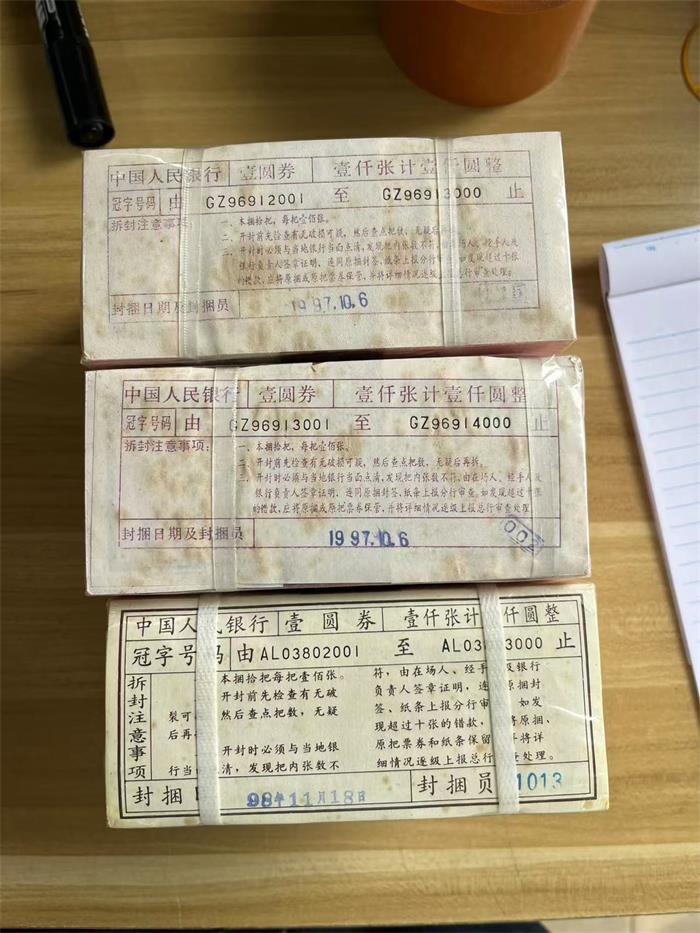 中国人民银行 壹圆券 壹仟张计壹仟圆整
冠字号码 由 GZ96912001 至 GZ96913000 止
拆封注意事项:
一、本捆拾把,每把壹佰张。
二、开封前先检查有无破损可疑,然后查点把数,无疑后再拆。
三、开封时必须与当地银行当面点清,发现把内张数不符,由在场人、经手人及
银行负责人签章证明,连同原捆封签、纸条上报分行审查,如发现超过十张
的错款,应将原捆或原把票券保管,并将详细情况逐级上报总行审查处理。
封捆日期及封捆员 1997.10.6
中国人民银行 壹圆券 壹仟张计壹仟圆整
冠字号码 由 GZ96913001 至 GZ96914000 止
拆封注意事项:
一、本捆拾把,每把壹佰张。
二、开封前先检查有无破损可疑,然后查点把数,无疑后再拆。
三、开封时必须与当地银行当面点清,发现把内张数不符,由在场人、经手人及
银行负责人签章证明,连同原捆封签、纸条上报分行审查,如发现超过十张
的错款,应将原捆或原把票券保管,并将详细情况逐级上报总行审查处理
封捆日期及封捆员 1997.10.6
002
中国人民银行 壹圆券 壹仟张计 仟圆整
冠字号码 由 AL03802001 至 AL03 3000 止
拆封注意事项
本捆拾把每把壹佰张。
开封前先检查有无破
裂可 然后查点把数,无疑
后再
开封时必须与当地银
行当 点清,发现把内张数不
符,由在场人、经手 及银行
负责人签章证明,连 原捆封
签、纸条上报分行审 如发
现超过十张的错款, 将原捆、
原把票券和纸条保留 并将详
细情况逐级上报总行 查处理。
封捆 98年11月18日 封捆员 1013